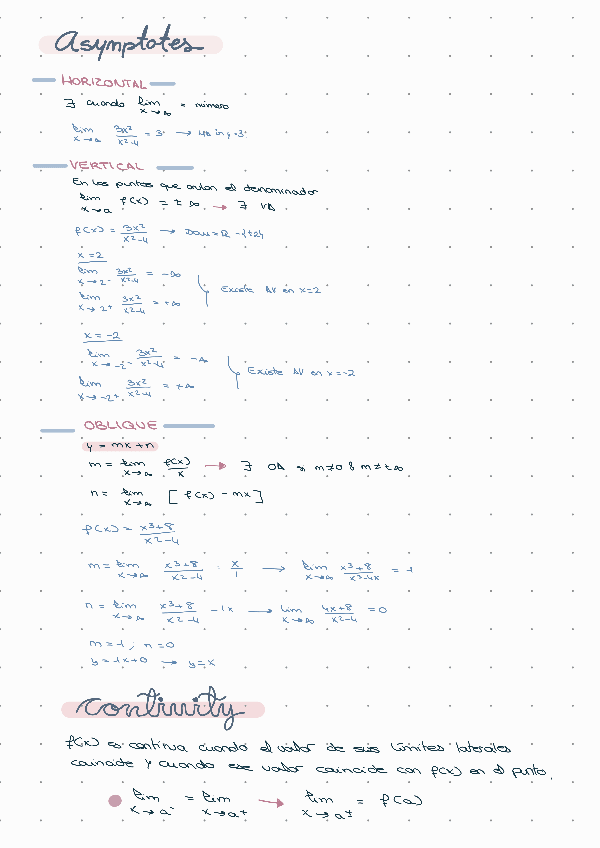 Asymptotes
HORIZONTAL
∃ cuando lim x→∞ = número
lim x→∞ 3x²/x²-4 = 3 → HA in y=3
VERTICAL
En los puntos que anulan el denominador
lim x→a f(x) = ±∞ → ∃ VA
f(x) = 3x²/x²-4 → Dom = R - {±2}
x = 2
lim x→2⁻ 3x²/x²-4 = -∞
Existe AV en x=2
lim x→2⁺ 3x²/x²-4 = +∞
x = -2
lim x→-2⁻ 3x²/x²-4 = -∞
Existe AV en x=-2
lim x→-2⁺ 3x²/x²-4 = +∞
OBLIQUE
y = mx+n
m = lim x→∞ f(x)/x → ∃ OA si m≠0 & m≠±∞
n = lim x→∞ [f(x) - mx]
f(x) = x³+8/x²-4
m = lim x→∞ x³+8/x²-4 : x/1 → lim x→∞ x³+8/x³-4x = 1
n = lim x→∞ x³+8/x²-4 - 1x → lim x→∞ 4x+8/x²-4 = 0
m=1 ; n=0
y=1x+0 → y=x
Contiuity
f(x) es continua cuando el valor de sus límites laterales
coincide y cuando ese valor coincide con f(x) en el punto.
lim x→a⁻ = lim x→a⁺ → lim x→a± = f(a)